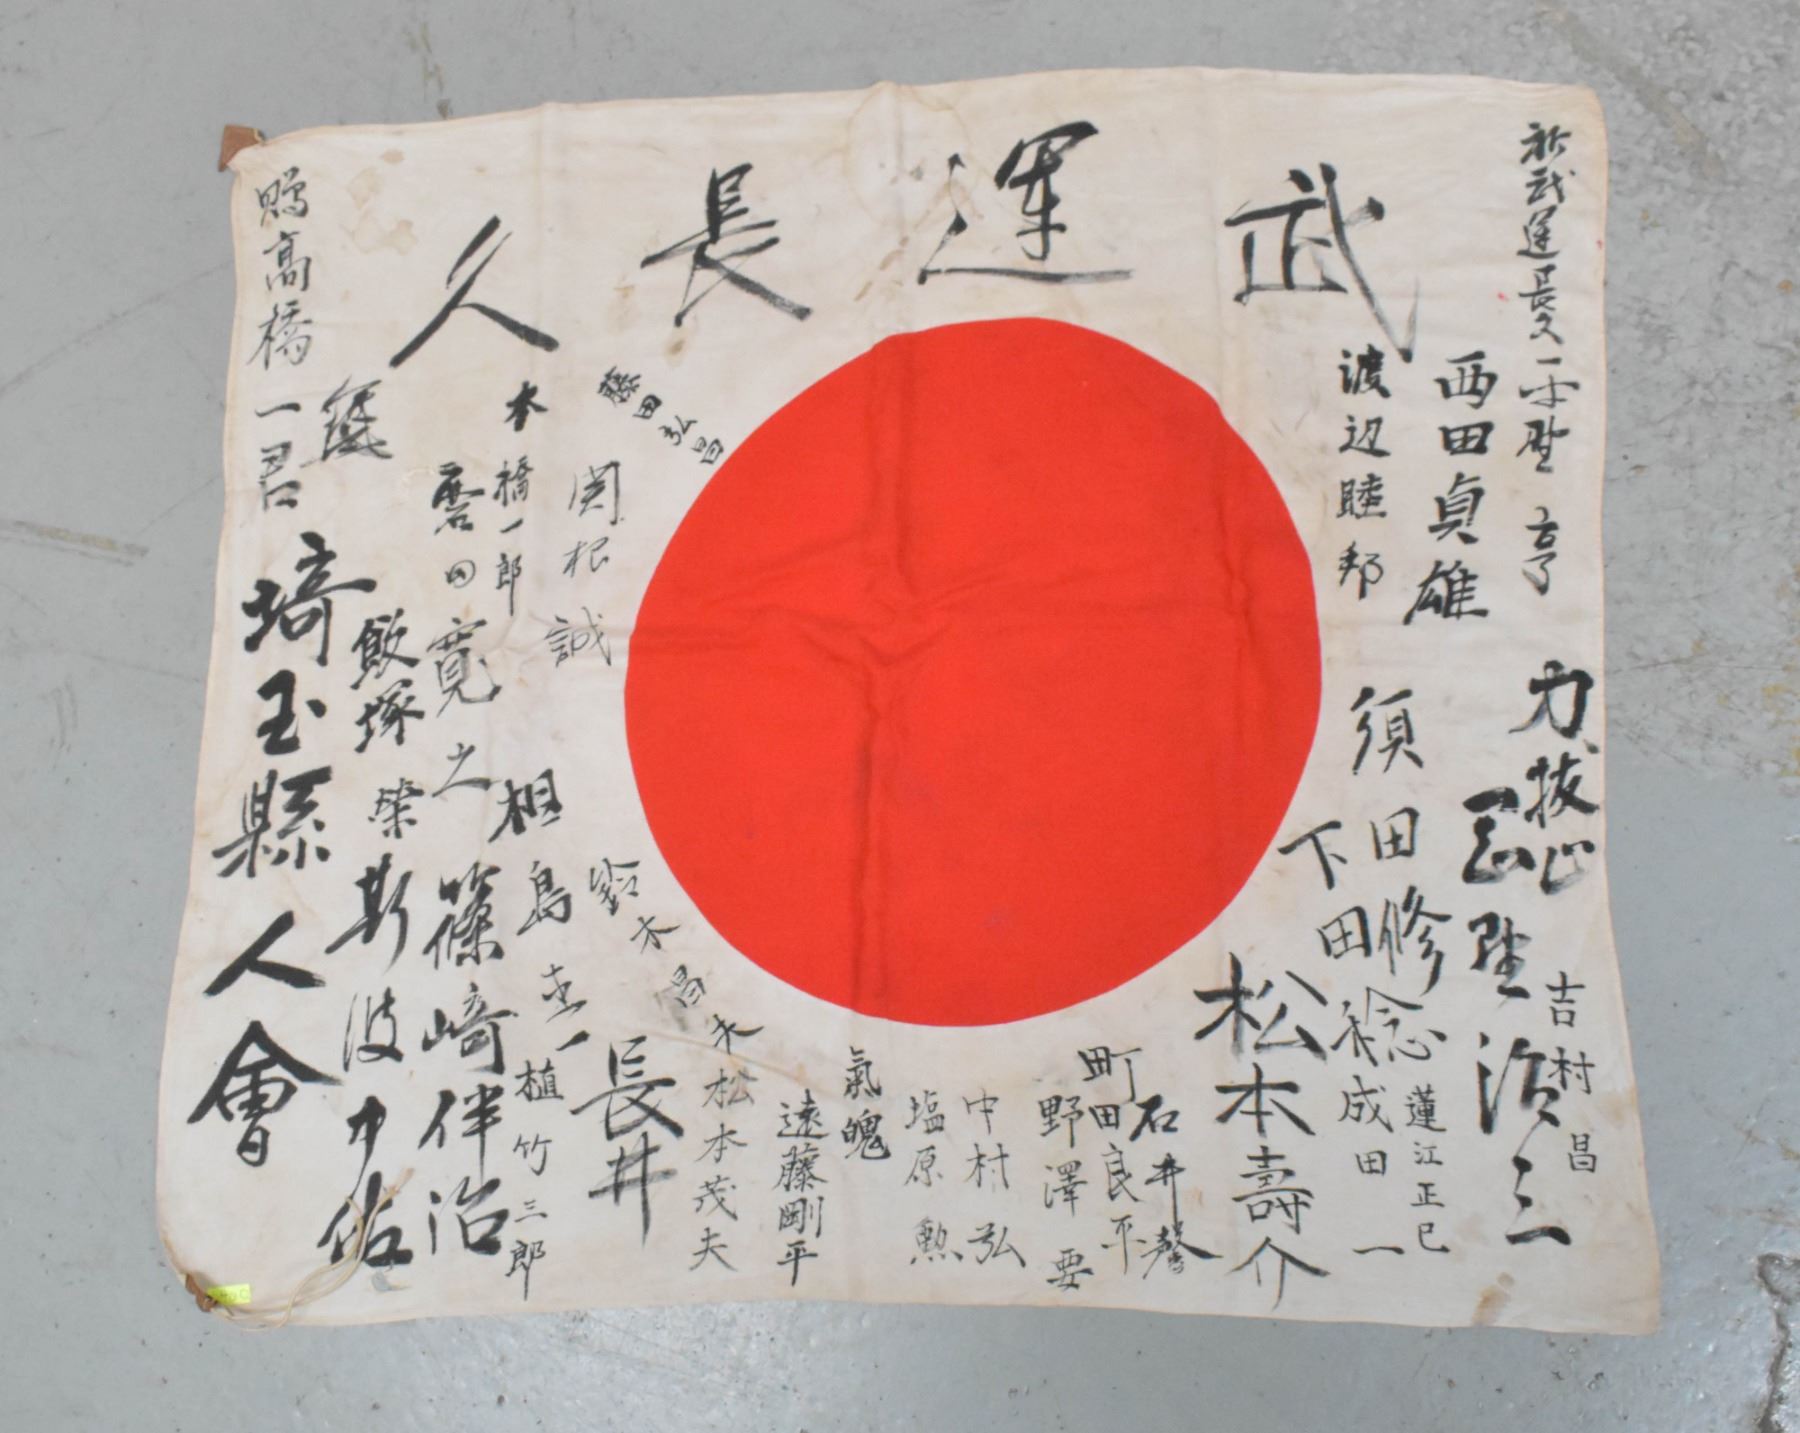 武運長久
祈武運長久
平野亨
西田貞雄
渡辺睦邦
力抜山
吉村昌
須田修
下田稔
蓮江正巳
成田一
松本壽介
石井馨
町田良平
野澤要
中村弘
塩原勲
氣魄
遠藤剛平
松本茂夫
鈴木昌
長井
藤田弘昌
関根誠
相島圭一
植竹三郎
本橋一郎
寛之
篠崎伴治
飯塚榮
斯波
贈高橋一君
埼玉縣人會